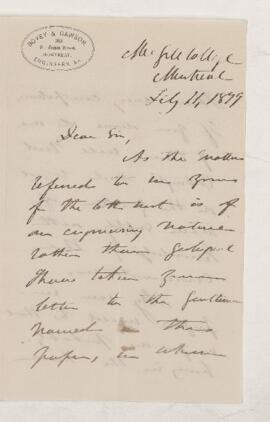 BOVEY & DAWSON
ENGINEERS, &c.
McGill College
Montreal
July 11, 1879
Dear Sir,
As the matter
referred to in yours
of the 10th inst is of
an engineering nature
rather than geological
I have taken your
letter to the gentlemen
named in this
paper, in whom